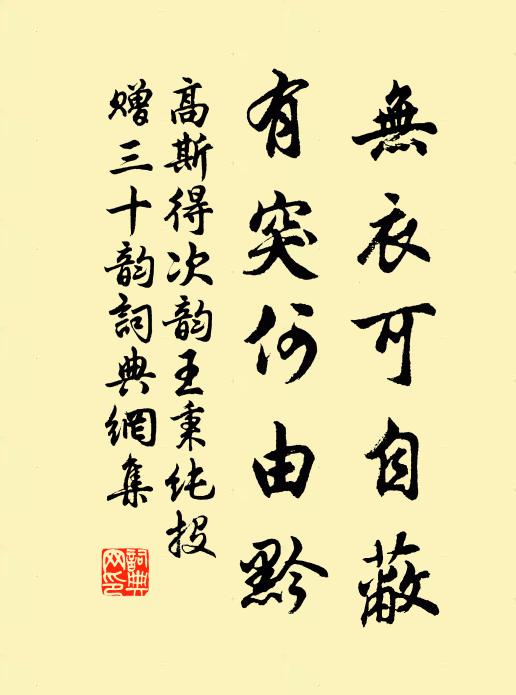 無衣可自蔽
有突何由黔
高斯得次韵王秉纯投
贈三十韵詞典網集
詞典網印